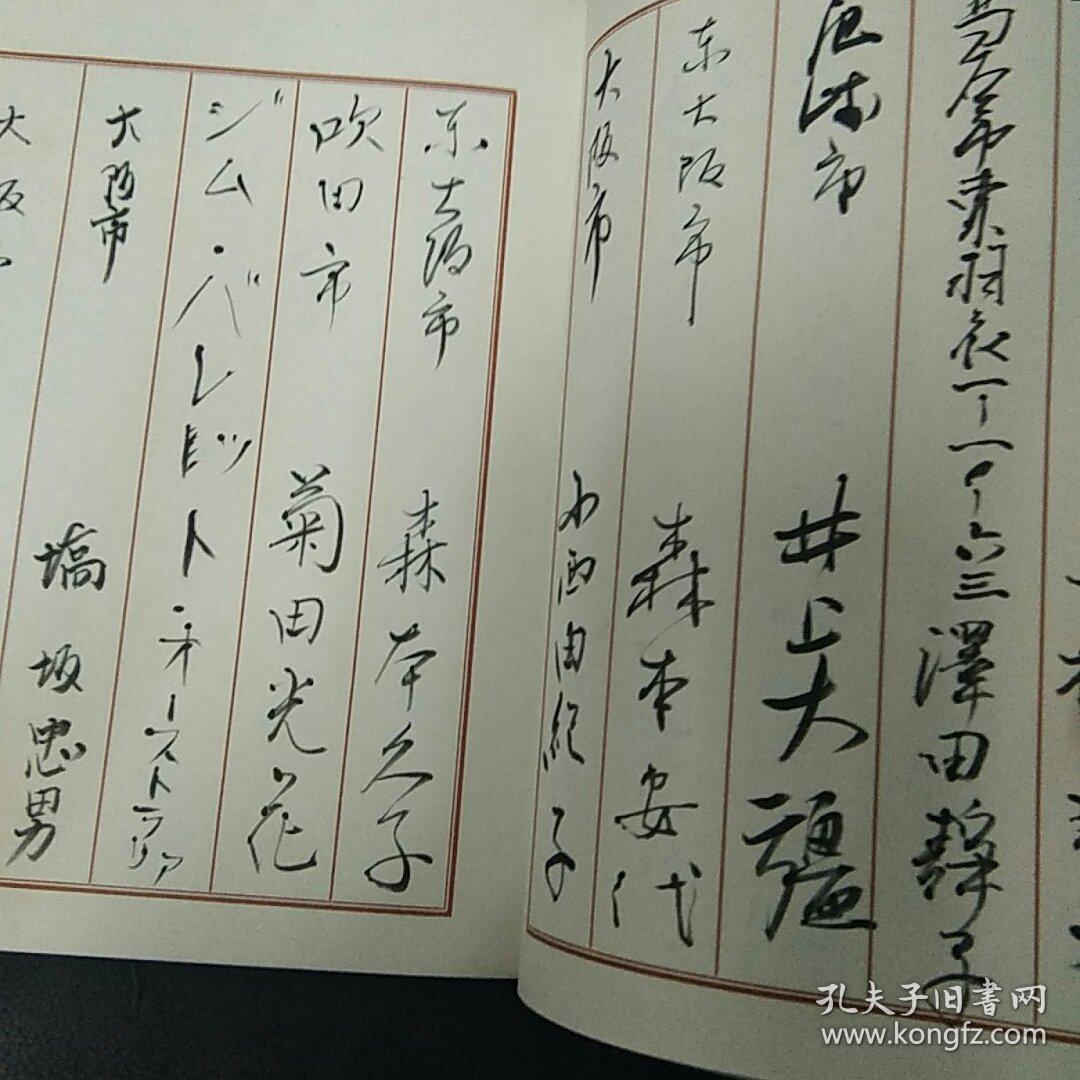 高石市東羽衣一-一〇-六三 澤田静子
市 井上大
東大阪市 森本安代
大阪市 小西由紀子
東大阪市 森本久子
吹田市 菊田光花
ジム・バレット・オーストラリア
大阪市 塙坂忠男
大阪
孔夫子旧書网
www.kongfz.com